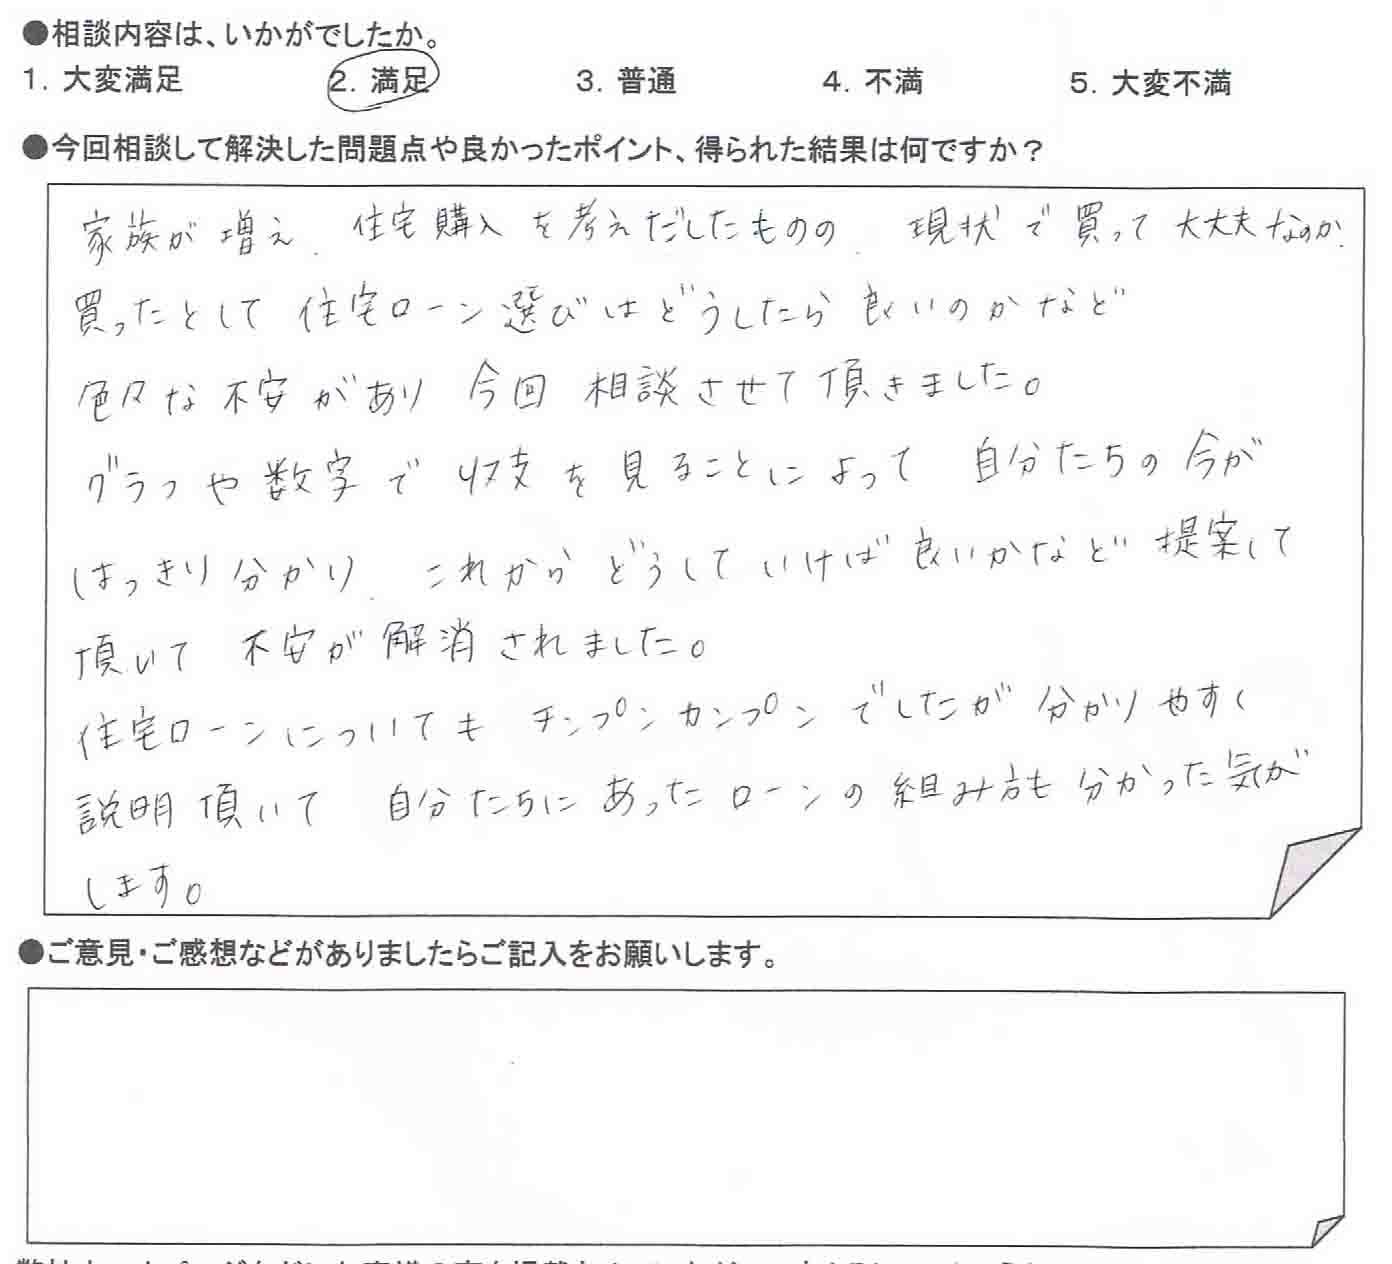 ●相談内容は、いかがでしたか。
1. 大変満足 2. 満足 3. 普通 4. 不満 5. 大変不満
●今回相談して解決した問題点や良かったポイント、得られた結果は何ですか？
家族が増え、住宅購入を考えだしたものの、現状で買って大丈夫なのか、
買ったとして住宅ローン選びはどうしたら良いのかなど
色々な不安があり今回相談させて頂きました。
グラフや数字で収支を見ることによって自分たちの今が
はっきり分かり、これからどうしていけば良いかなど提案して
頂いて不安が解消されました。
住宅ローンについてもチンプンカンプンでしたが分かりやすく
説明頂いて自分たちにあったローンの組み方も分かった気が
します。
●ご意見・ご感想などがありましたらご記入をお願いします。